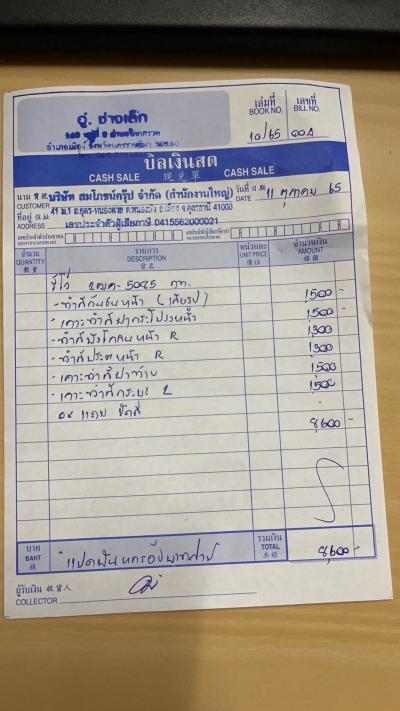 อู่ ช่างเล็ก
เล่มที่ เลขที่
BOOK NO. BILL NO.
10/65 004
บิลเงินสด
CASH SALE 現兌單 CASH SALE
นาม
CUSTOMER บริษัท สมโภชน์กรุ๊ป จำกัด (สำนักงานใหญ่) วันที่
DATE 11 ตุลาคม 65
ที่อยู่
ADDRESS 41 ม.1 อ.เมือง จ.อุดรธานี 41000
เลขประจำตัวผู้เสียภาษี 0415562000021
จำนวน รายการ หน่วยละ จำนวนเงิน
QUANTITY DESCRIPTION UNIT PRICE AMOUNT
數量 貨名 價註 銀額
- ทำสีกันชนหน้า 1,500 -
- เคาะทำสีฝากระโปรงหน้า 1,500 -
- ทำสีบังโคลนหน้า R 1,300
- ทำสีประตูหน้า R 1,300
- เคาะทำสีฝาท้าย 1,500
- เคาะทำสีกระบะ L 1,500
8,600 -
บาท
BAHT
銖 แปดพันหกร้อยบาทถ้วน
รวมเงิน
TOTAL
共銀 8,600 -
ผู้รับเงิน 收貨人
COLLECTOR